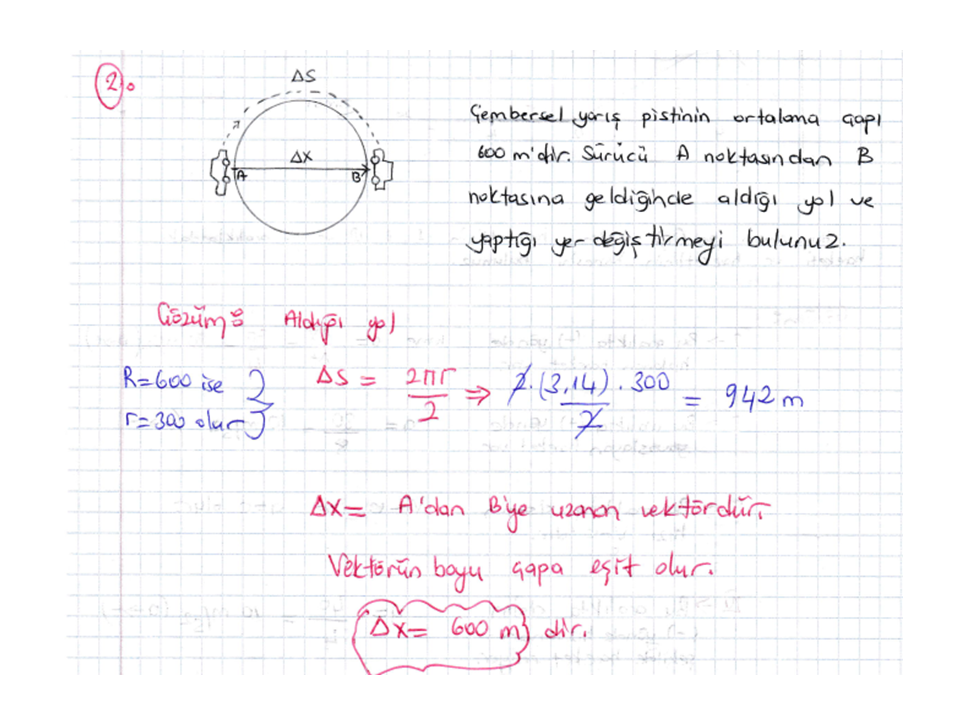 2.
ΔS
ΔX
A
B
Çembersel yarış pistinin ortalama çapı
600 m'dir. Sürücü A noktasından B
noktasına geldiğinde aldığı yol ve
yaptığı yer değiştirmeyi bulunuz.
Çözüm: Aldığı yol
R=600 ise
r=300 olur
ΔS = 2πr/2 ⇒ 2.(3,14).300/2 = 942 m
ΔX = A'dan B'ye uzanan vektördür.
Vektörün boyu çapa eşit olur.
ΔX = 600 m dir.